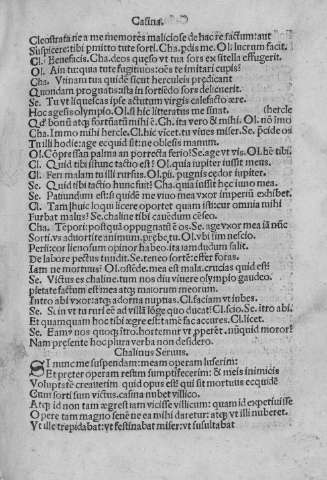 Casina.
Cleostrata ne a me memores maliciose de hac re factum: aut
Suspicere: tibi pmitto tute sorti. Cha. pdis me. Ol: lucrum facit.
Cl: Benefacis. Cha. deos queso vt tua sors ex sitella effugerit.
Ol. Ain tu: qua tute fugitiuos: oēs te imitari cupis?
Cha. Vtinam tua quidē sicut herculei predicant
Quondam prognatis: ista in sortiēdo sors delicuerit.
Se. Tu vt liquescas ipse actutum virgis calefacto ære.
Hoc age sis olympio. Ol. si hic litteratus me sinat. (hercle
Qḋ bonū atq̧ fortuatū mihi ē. Ch. ita vero & mihi. Ol. nō imo
Cha. Immo mihi hercle. Cl. hic vicet. tu vines miser. Se. pcide os
Tu illi hodie. ecquid sit: ne obiesis manum.
Ol. Cōpressan palma an porrecta ferio? Se. age vt vis. Ol. hē tibi.
Cl. Quid tibi istunc tactio est? Ol. quia iupiter iussit meus.
Cl. Feri malam tu illi rursus. Ol. pii. pugnis cędor iupiter.
Se. Quid tibi tactio hunc fuit? Cha. quia iussit hęc iuno mea.
Se. Patiundum est: si quidē me viuo mea vxor imperiū exhibet.
Cl. Tam huic loqui licere oportet quam isti. cur omina mihi
Furbat malus? Se. chaline tibi cauedum cēseo.
Cha. Tēpori: postq̄ oppugnatū ē os. Se. age vxor mea iā nūc
Sorti. va aduortite animum. prębe tu. Ol. vbi sim nescio.
Perii: cor lienosum opinor habeo. ita iam dudum salit.
De labore pectus tundit. Se. teneo sortē: effer foras.
Iam ne mortuus? Ol. ostēde. mea est mala. crucias quid est?
Se. Victus es chaline. tum nos diu viuere olympio gaudeo.
pietate factum est mea atq̧ maiorum meorum.
Intro abi vxor: atq̧ adorna nuptias. Cl. faciam vt iubes.
Se. Scin vt tu ruri eē ad villā lōge quo ducat? Cl. scio. Se. itro abi.
Et quamquam hoc tibi ægre est: tamē fac accures. Cl. licet.
Se. Eam⁹ nos quoq̧ itro. hortemur vt pperēt. nūquid moror?
Nam presente hoc plura verba non desidero.
Chalinus Seruus.
SI nunc me suspendam: meam operam luserim:
Et preter operam restim sumptifecerim: & meis inimicis
Voluptatē creauerim quid opus est? qui sit mortuus ecquidē
Cum sorti sum victus. casina nubet villico.
Atq̧ id non tam ægrest iam vicisse villicum: quam id expetiuisse
Opere tam magno senē ne ea mihi daretur: atq̧ vt illi nuberet.
Vt ille trepidabat: vt festinabat miser: vt susultabat